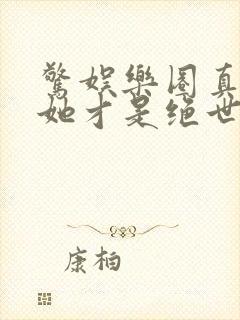 驚娛樂圈真
她才是绝世
康柏